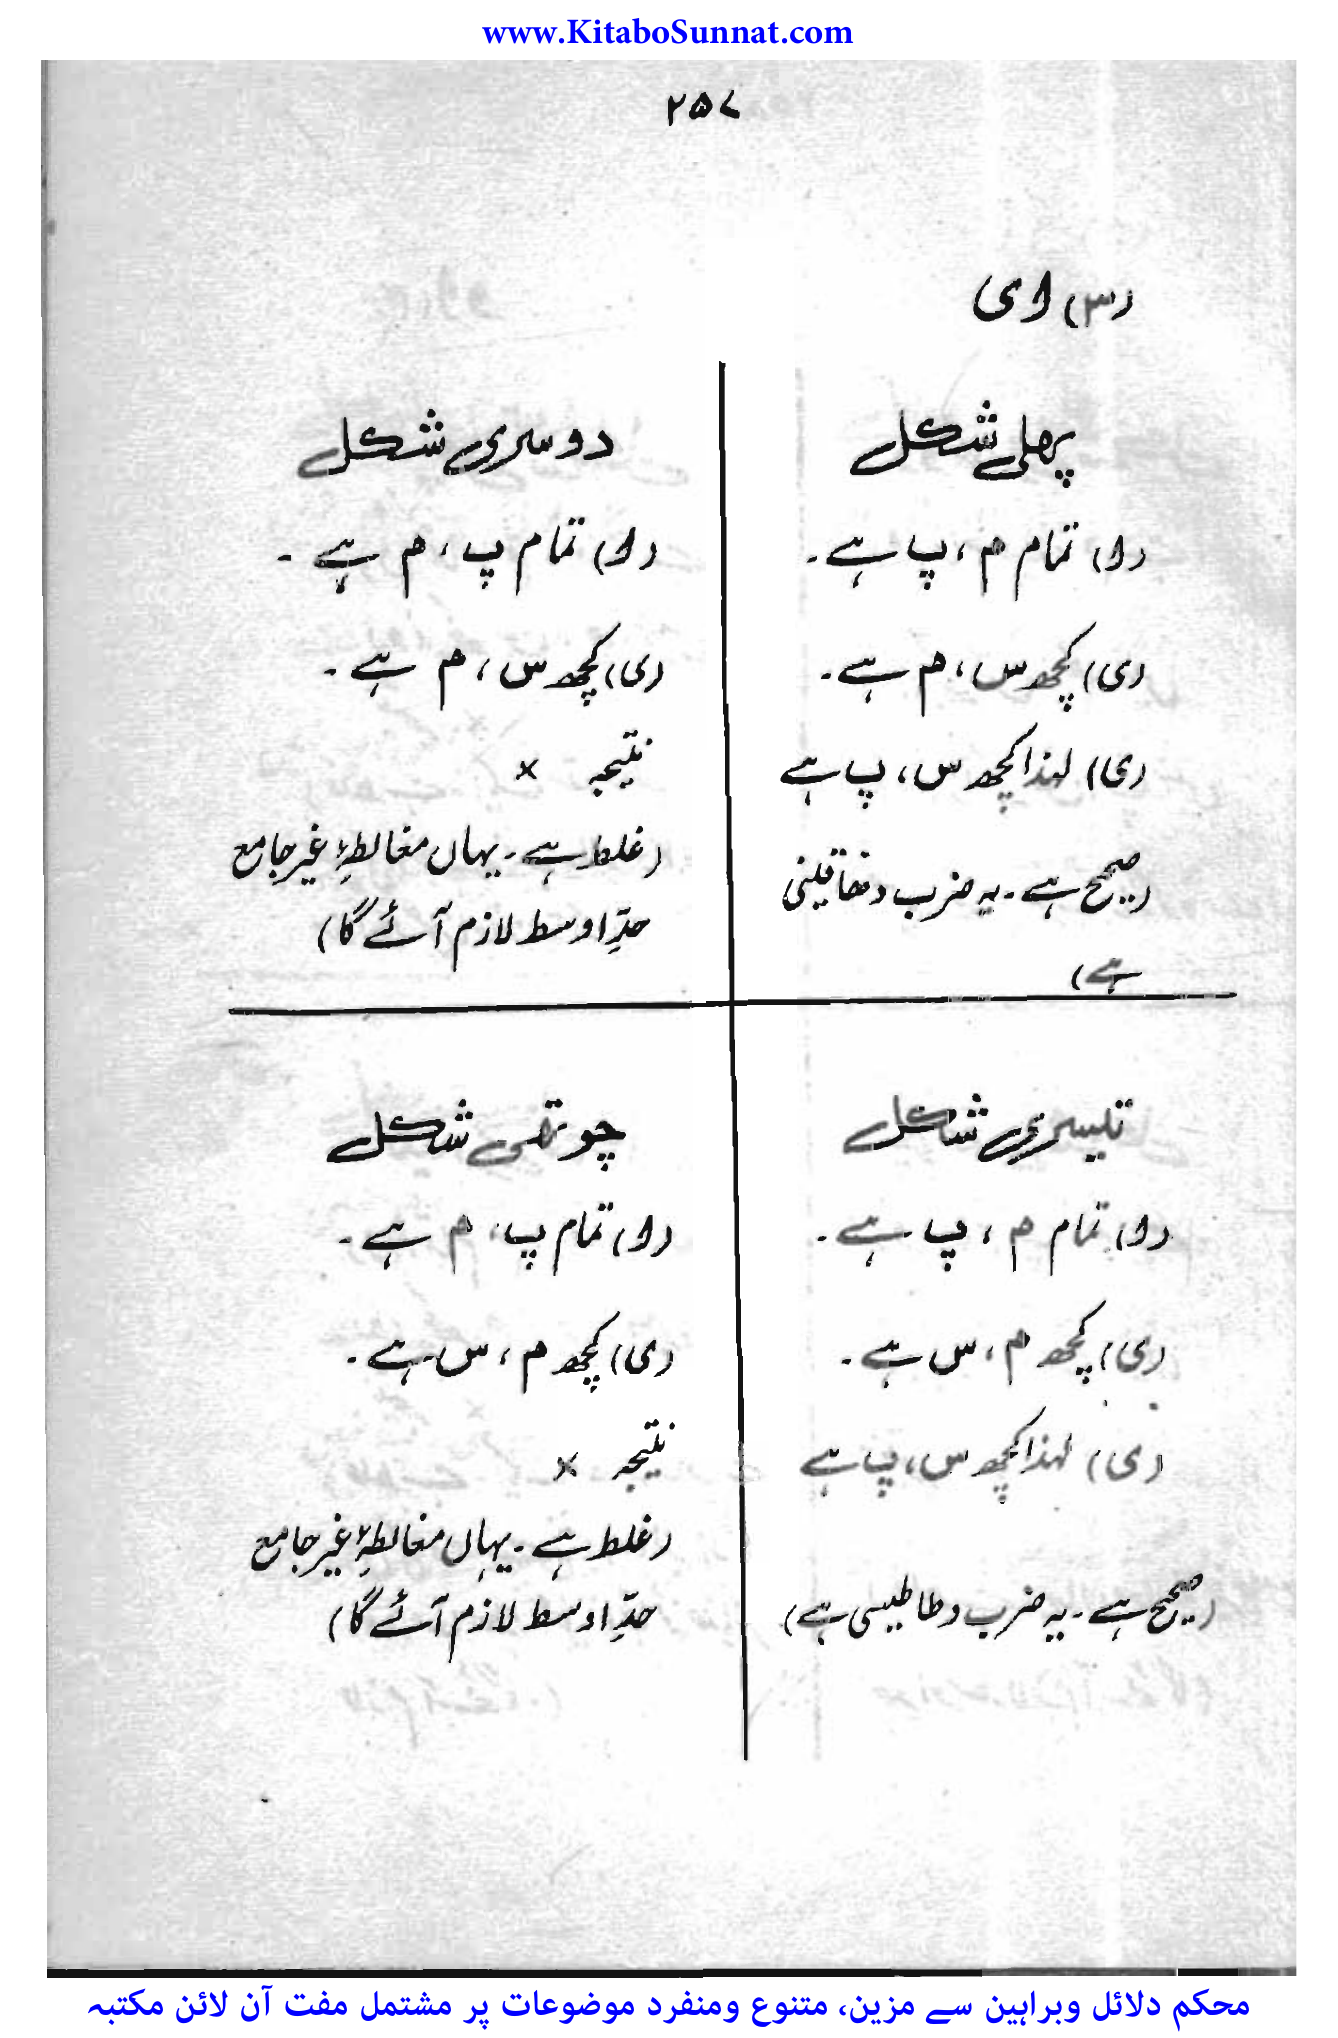 www.KitaboSunnat.com
۲۵۷
(۳) ا ی
پہلی شکل
(ا) تمام م، پ ہے۔
(ی) کچھ س، م ہے۔
(ی) لہٰذا کچھ س، پ ہے
(صحیح ہے۔ یہ ضرب دفاقینی
ہے)
دوسری شکل
(ا) تمام پ، م ہے۔
(ی) کچھ س، م ہے۔
نتیجہ ×
(غلط ہے۔ یہاں مغالطۂ غیر جامع
حدِّ اوسط لازم آئے گا)
تیسری شکل
(ا) تمام م، پ ہے۔
(ی) کچھ م، س ہے۔
(ی) لہٰذا کچھ س، پ ہے
(صحیح ہے۔ یہ ضرب دطاطیسی ہے)
چوتھی شکل
(ا) تمام پ، م ہے۔
(ی) کچھ م، س ہے۔
نتیجہ ×
(غلط ہے۔ یہاں مغالطۂ غیر جامع
حدِّ اوسط لازم آئے گا)
محکم دلائل وبراہین سے مزین، متنوع ومنفرد موضوعات پر مشتمل مفت آن لائن مکتبہ